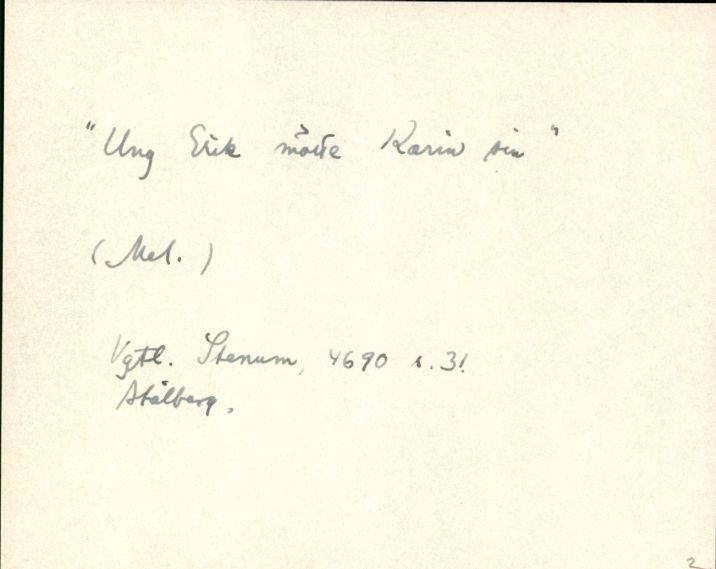 "Ung Erik mötte Karin sin"
(Mel.)
Vgtl. Stenum, 4690 s. 31.
Stålberg.
2